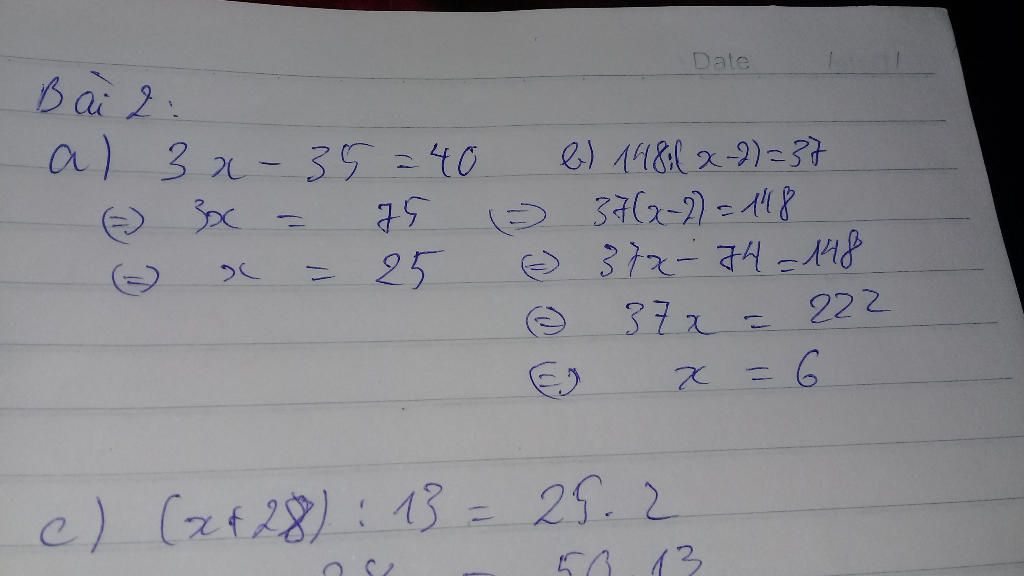 Date
Bài 2:
a) 3x - 35 = 40
⇔ 3x = 75
⇔ x = 25
b) 148:(x-2)=37
⇔ 37(x-2)=148
⇔ 37x - 74 = 148
⇔ 37x = 222
⇔ x = 6
c) (x+28) : 13 = 25. 2
= 50.13